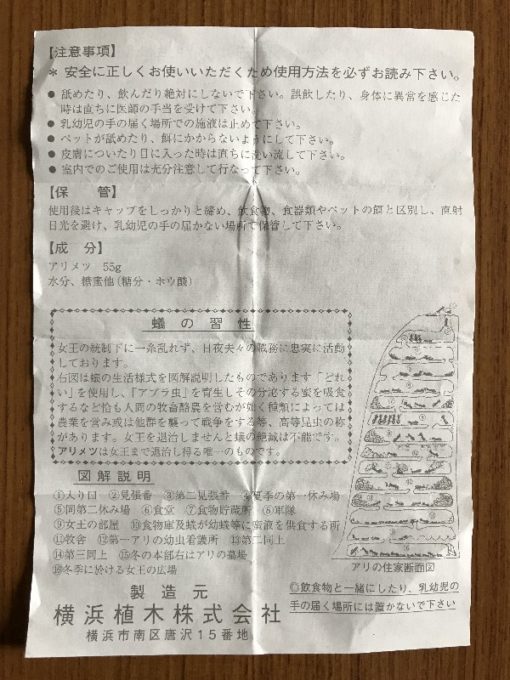 【注意事項】
＊ 安全に正しくお使いいただくため使用方法を必ずお読み下さい。
● 舐めたり、飲んだり絶対にしないで下さい。誤飲したり、身体に異常を感じた
時は直ちに医師の手当を受けて下さい。
● 乳幼児の手の届く場所での施液は止めて下さい。
● ペットが舐めたり、餌にかからないようにして下さい。
● 皮膚についたり目に入った時は直ちに洗い流して下さい。
● 室内でのご使用は充分注意して行なって下さい。
【保　管】
使用後はキャップをしっかりと締め、飲食物、食器類やペットの餌と区別し、直射
日光を避け、乳幼児の手の届かない場所で保管して下さい。
【成　分】
アリメツ　55g
水分、糖蜜他(糖分・ホウ酸)
蟻の習性
女王の統制下に一糸乱れず、日夜夫々の職務に忠実に活動
しております。
右図は蟻の生活様式を図解説明したものであります「どれ
い」を使用し、『アブラ虫』を育生しその分泌する蜜を吸食
するなど恰も人間の牧畜酪農を営むが如く種類によっては
農業を営み或は他群を襲って戦争をする等、高等昆虫の称
があります。女王を退治しませんと蟻の絶滅は不能です。
アリメツは女王まで退治し得る唯一のものです。
図解説明
①入り口　②見張番　③第二見張番　④夏季の第一休み場
⑤同第二休み場　⑥食堂　⑦食物貯蔵所　⑧軍隊
⑨女王の部屋　⑩食物庫及蟻が幼蟻等に蜜液を供食する所
⑪牧舎　⑫第一アリの幼虫看護所　⑬第二同上
⑭第三同上　⑮冬の本部右はアリの墓場
⑯冬季に於ける女王の広場
アリの住家断面図
製造元
横浜植木株式会社
横浜市南区唐沢15番地
◎飲食物と一緒にしたり、乳幼児の
手の届く場所には置かないで下さい